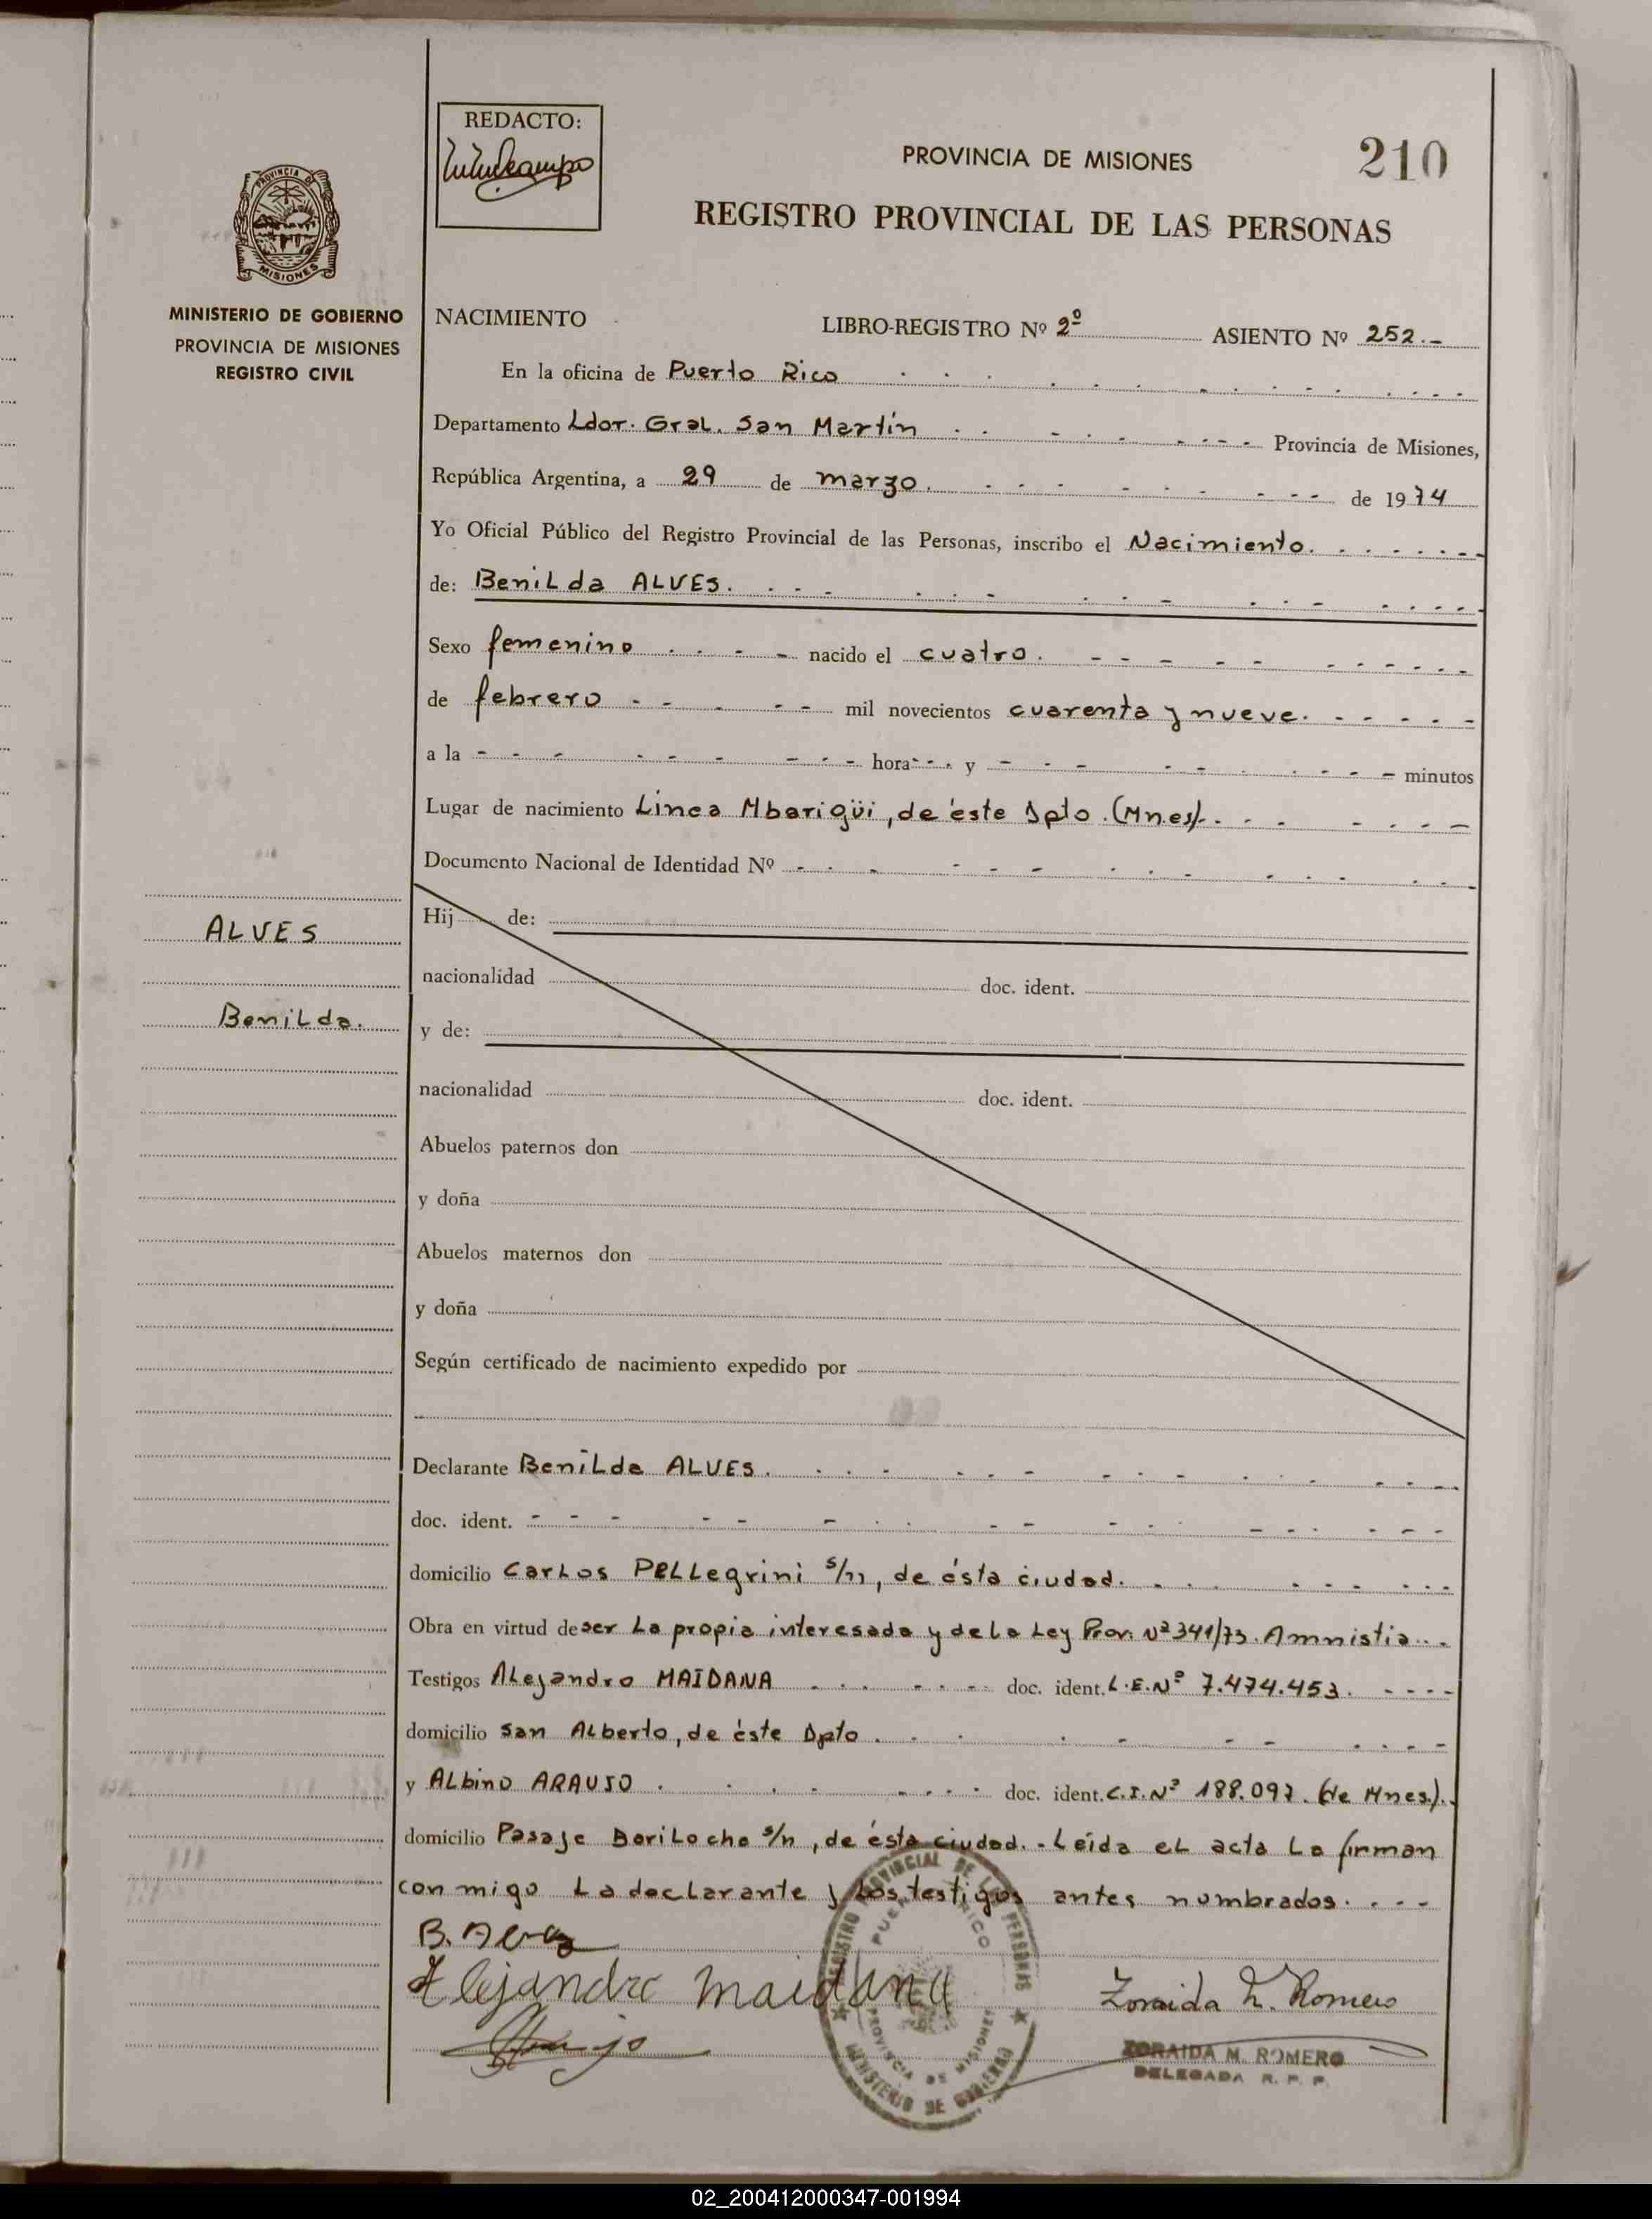 REDACTO:
PROVINCIA DE MISIONES
210
REGISTRO PROVINCIAL DE LAS PERSONAS
PROVINCIA DE
MISIONES
MINISTERIO DE GOBIERNO
PROVINCIA DE MISIONES
REGISTRO CIVIL
NACIMIENTO LIBRO-REGISTRO Nº 2º ASIENTO Nº 252.-
En la oficina de Puerto Rico
Departamento Ldor. Gral. San Martín Provincia de Misiones,
República Argentina, a 29 de marzo. de 1974
Yo Oficial Público del Registro Provincial de las Personas, inscribo el Nacimiento.
de: Benilda ALVES.
Sexo femenino nacido el cuatro.
de febrero mil novecientos cuarenta y nueve.
a la hora y minutos
Lugar de nacimiento Linea Mbarigüi, de éste Dpto. (Mnes).
Documento Nacional de Identidad Nº
ALVES
Benilda.
Hij de:
nacionalidad doc. ident.
y de:
nacionalidad doc. ident.
Abuelos paternos don
y doña
Abuelos maternos don
y doña
Según certificado de nacimiento expedido por
Declarante Benilda ALVES.
doc. ident.
domicilio Carlos Pellegrini s/n, de ésta ciudad.
Obra en virtud de ser la propia interesada y de la Ley Prov. Nº 341/73. Amnistia.
Testigos Alejandro MAIDANA doc. ident. L.E.Nº 7.474.453.
domicilio San Alberto, de éste Dpto.
y Albino ARAUJO. doc. ident. C.I.Nº 188.097. (de Mnes).
domicilio Pasaje Bariloche s/n, de ésta ciudad.- Leída el acta la firman
conmigo la declarante y los testigos antes nombrados.
Alejandro Maidana
Zoraida M. Romero
REGISTRO PROVINCIAL DE LAS PERSONAS
PUERTO RICO
PROVINCIA DE MISIONES
MINISTERIO DE GOBIERNO
ZORAIDA M. ROMERO
DELEGADA R. P. P.
02_200412000347-001994